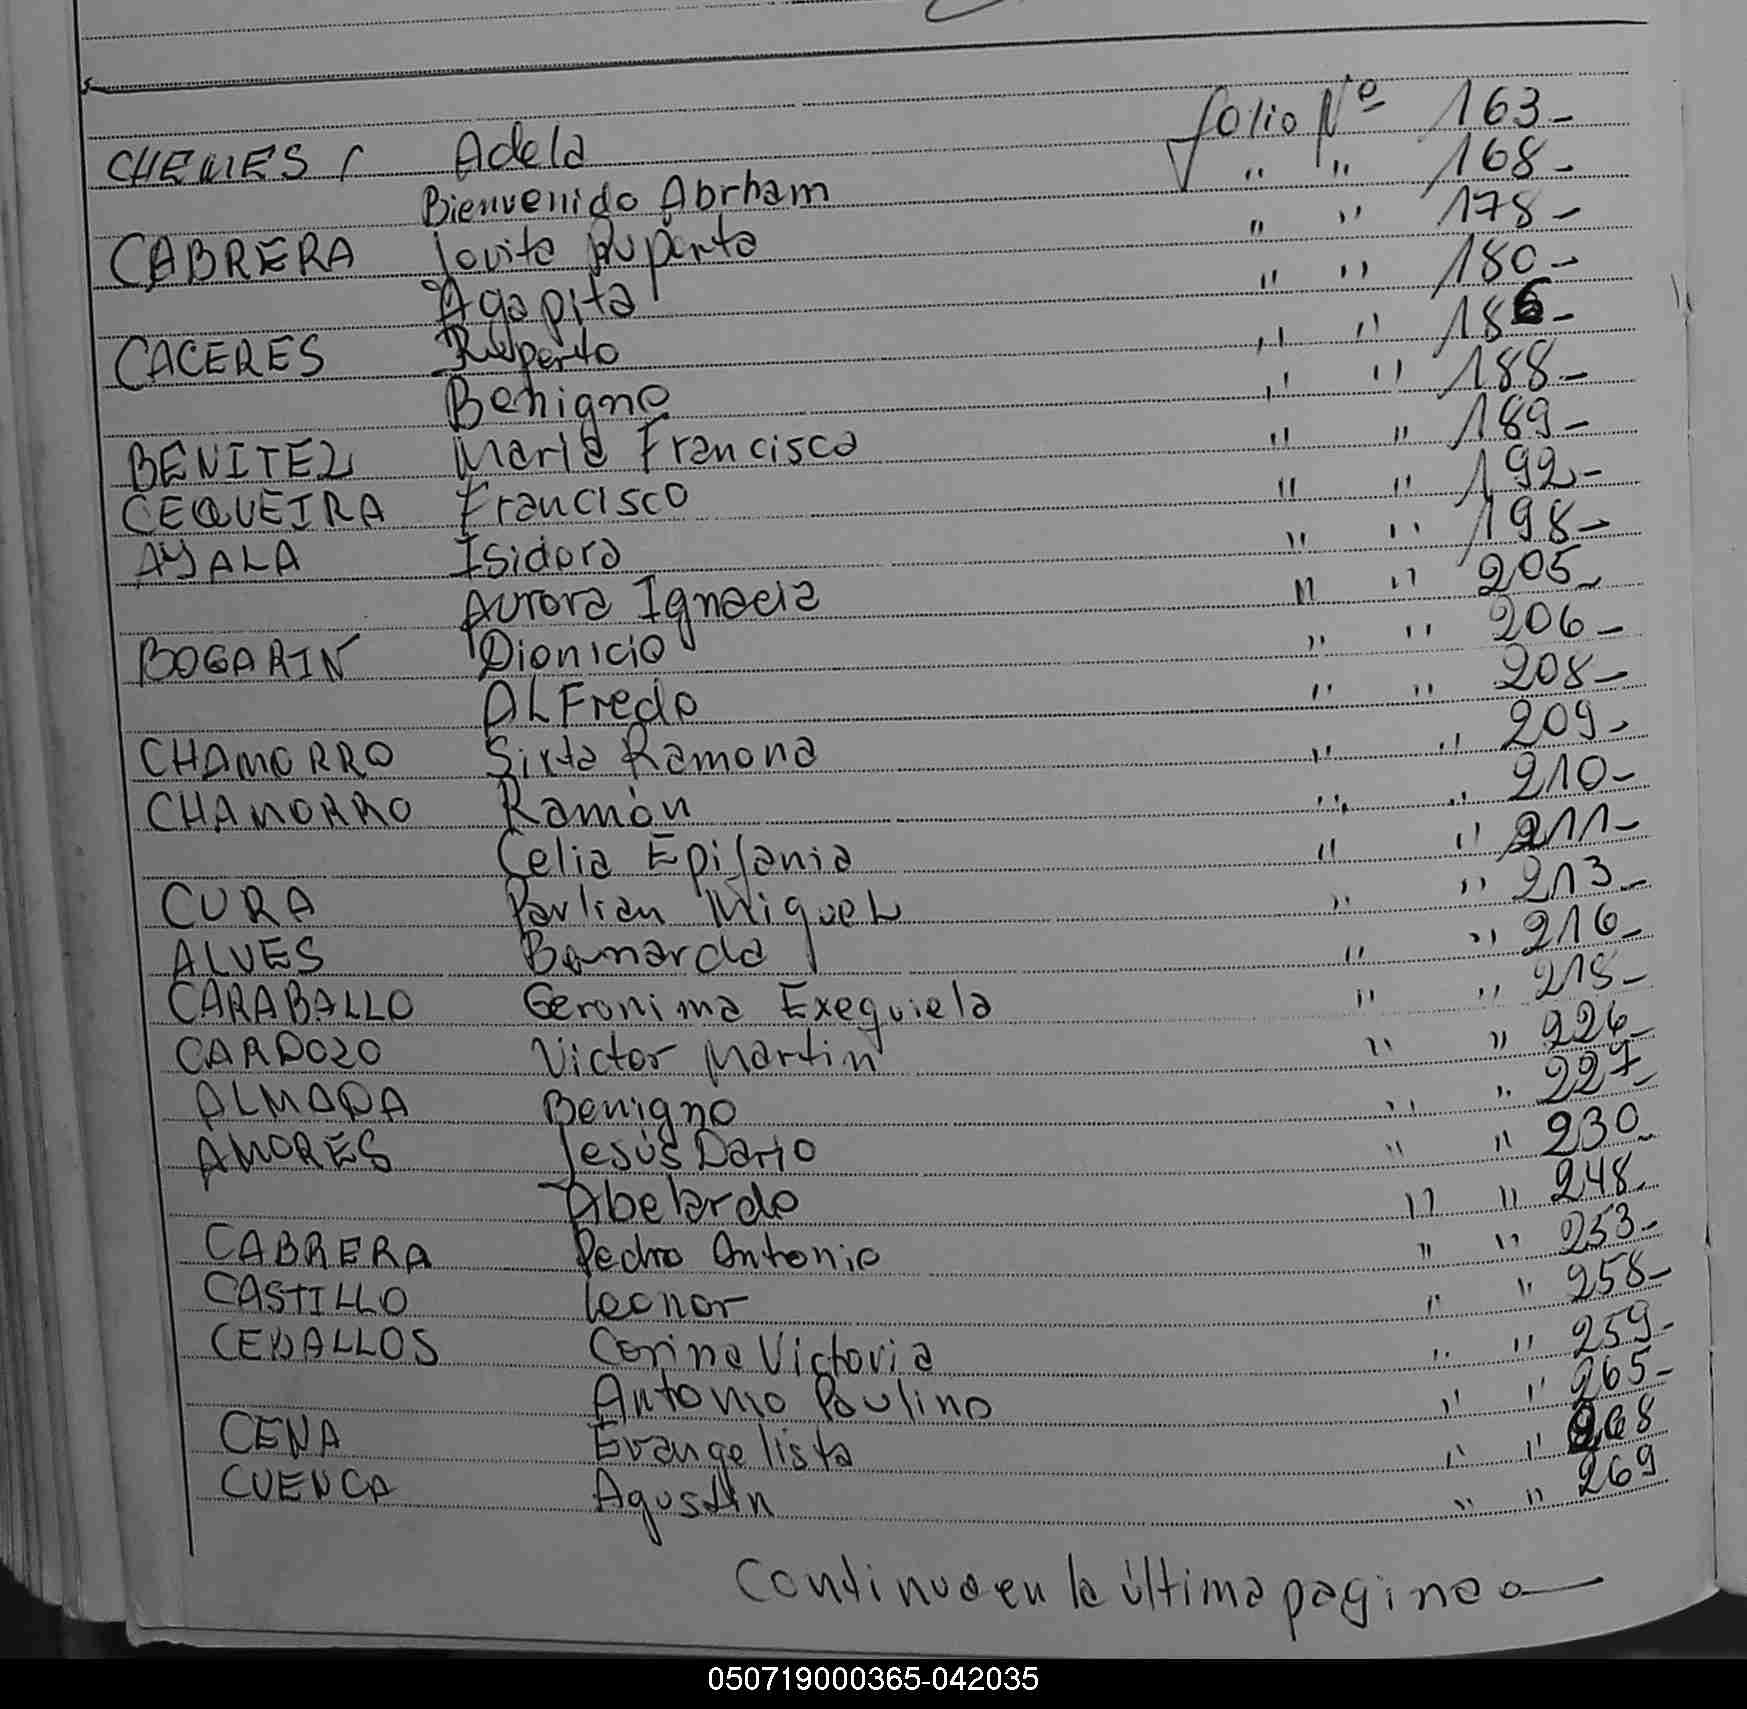 CHEMES, Adela folio Nº 163-
Bienvenido Abrham " " 168-
CABRERA Jovita Ruperta " " 178-
Agapita " " 180-
CACERES Ruperto " " 186-
Benigno " " 188-
BENITEZ María Francisca " " 189-
CEQUEIRA Francisco " " 192-
AYALA Isidora " " 198-
Aurora Ignacia " " 205-
BOGARIN Dionicio " " 206-
ALFredo " " 208-
CHAMORRO Sixta Ramona " " 209-
CHAMORRO Ramón " " 210-
Celia Epifania " " 211-
CURA Paulian Miguel " " 213-
ALVES Bernarda " " 216-
CARABALLO Geronima Exequiela " " 218-
CARDOZO Victor Martin " " 226-
ALMADA Benigno " " 227-
AMORES Jesús Dario " " 230-
Abelardo " " 248-
CABRERA Pedro Antonio " " 253-
CASTILLO Leonor " " 258-
CEBALLOS Corina Victoria " " 259-
Antonio Paulino " " 265-
CENA Evangelista " " 268
CUENCA Agustín " " 269
Continua en la última pagina
050719000365-042035